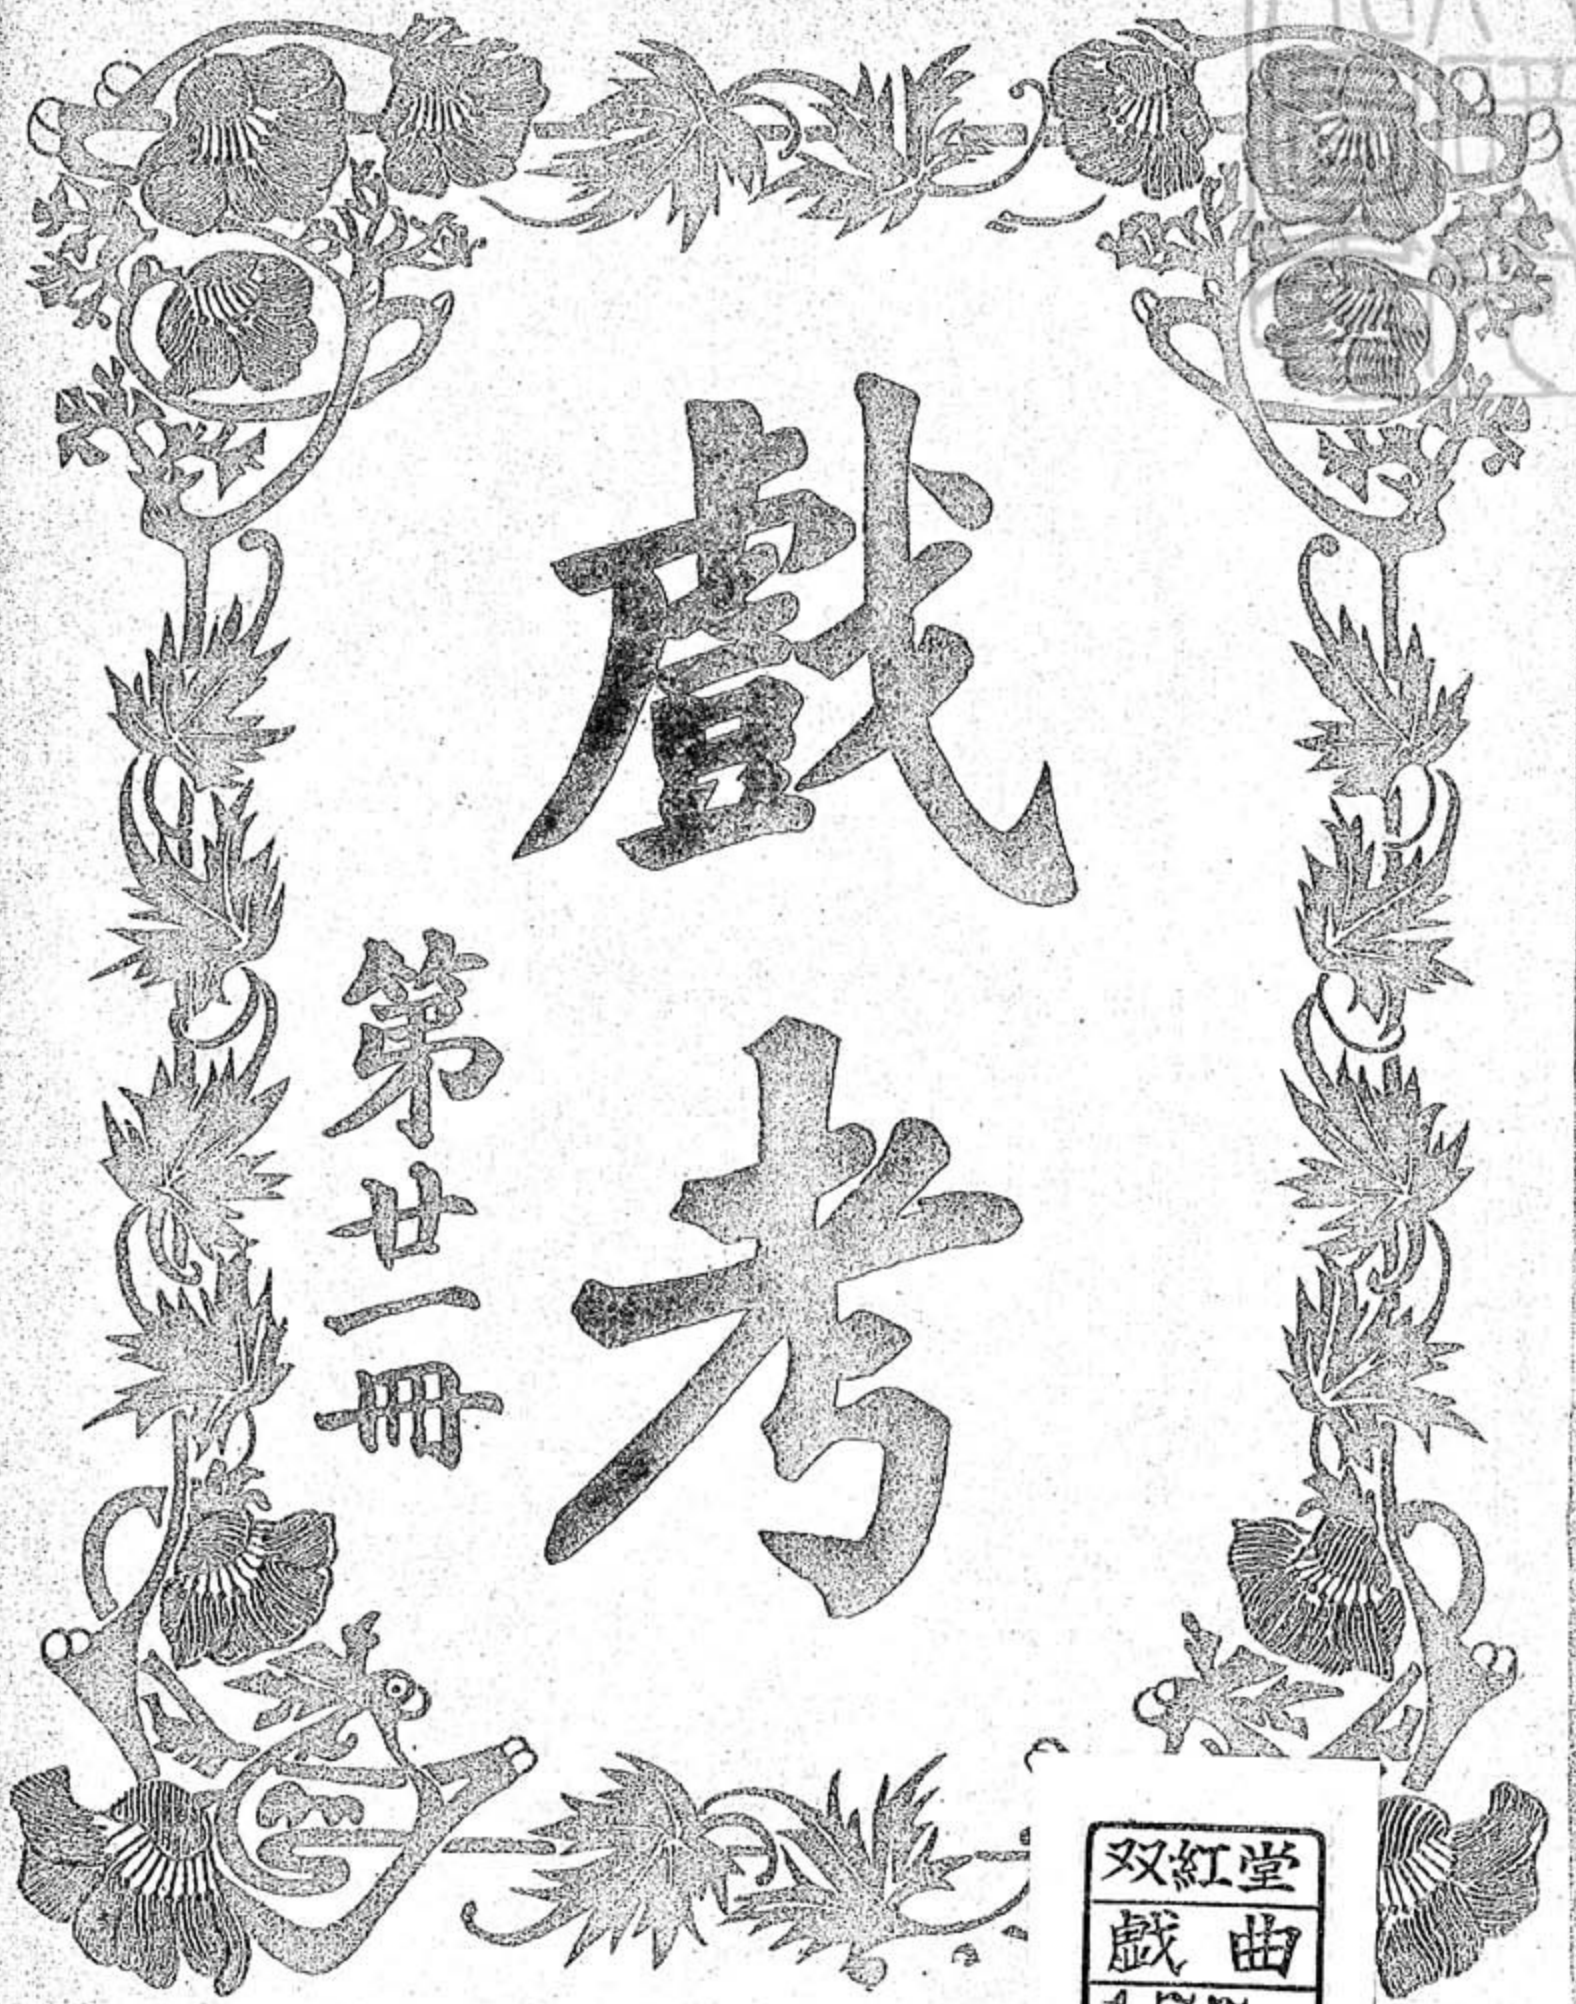 戲考
第廿一冊
双紅堂
戯曲